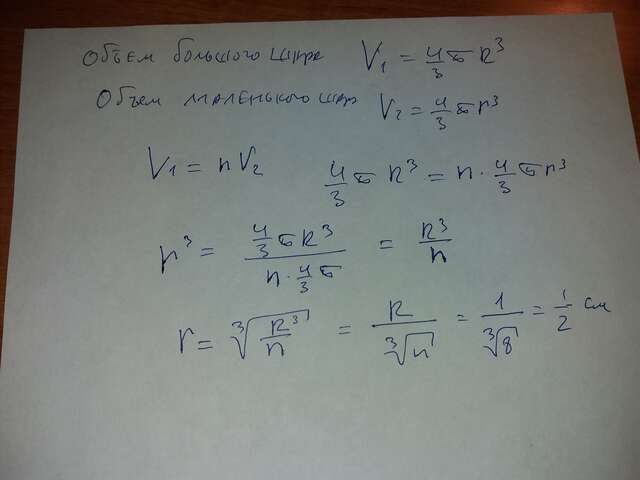 Объем большого шара V₁ = 4/3 π R³
Объем маленького шара V₂ = 4/3 π r³
V₁ = n V₂ 4/3 π R³ = n · 4/3 π r³
r³ = (4/3 π R³)/(n · 4/3 π) = R³/n
r = ∛(R³/n) = R/∛n = 1/∛8 = 1/2 см